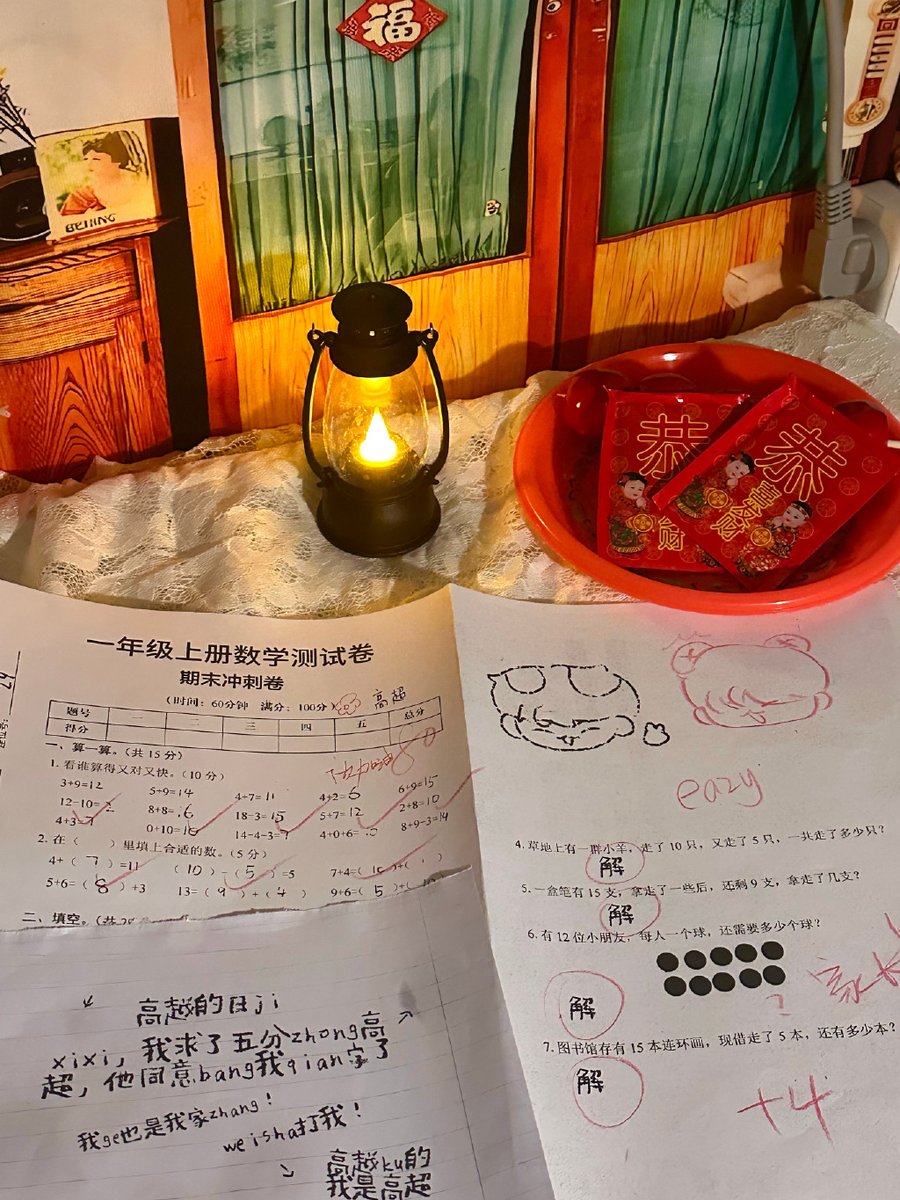 福
BEIJING
恭
喜
财
恭
喜
财
一年级上册数学测试卷
期末冲刺卷
(时间: 60分钟 满分: 100分) 高超
题号 一 二 三 四 五 总分
得分
80
一、算一算。(共 15 分)
1. 看谁算得又对又快。(10 分)
3+9=12 5+9=14 4+7=11 4+2=6 6+9=15
12-10=2 8+8=16 18-3=15 5+7=12 2+8=10
4+3=7 0+10=10 14-4-3=7 4+0+6=10 8+9-3=14
2. 在( )里填上合适的数。(5 分)
4+(7)=11 (10)-(5)=5 7+4=(10)+(1)
5+6=(8)+3 13=(9)+(4) 9+6=(5)+(10)
二、填空。
高越的日ji
xixi，我求了五分zhong高
超，他同意bang我qian字了
我ge也是我家zhang！
weisha打我！
高越ku的
我是高超
eazy
4. 草地上有一群小羊，走了 10 只，又走了 5 只，一共走了多少只？
解
5. 一盒笔有 15 支，拿走了一些后，还剩 9 支，拿走了几支？
解
6. 有 12 位小朋友，每人一个球，还需要多少个球？
解
? 家长
7. 图书馆存有 15 本连环画，现借走了 5 本，还有多少本？
解
+4